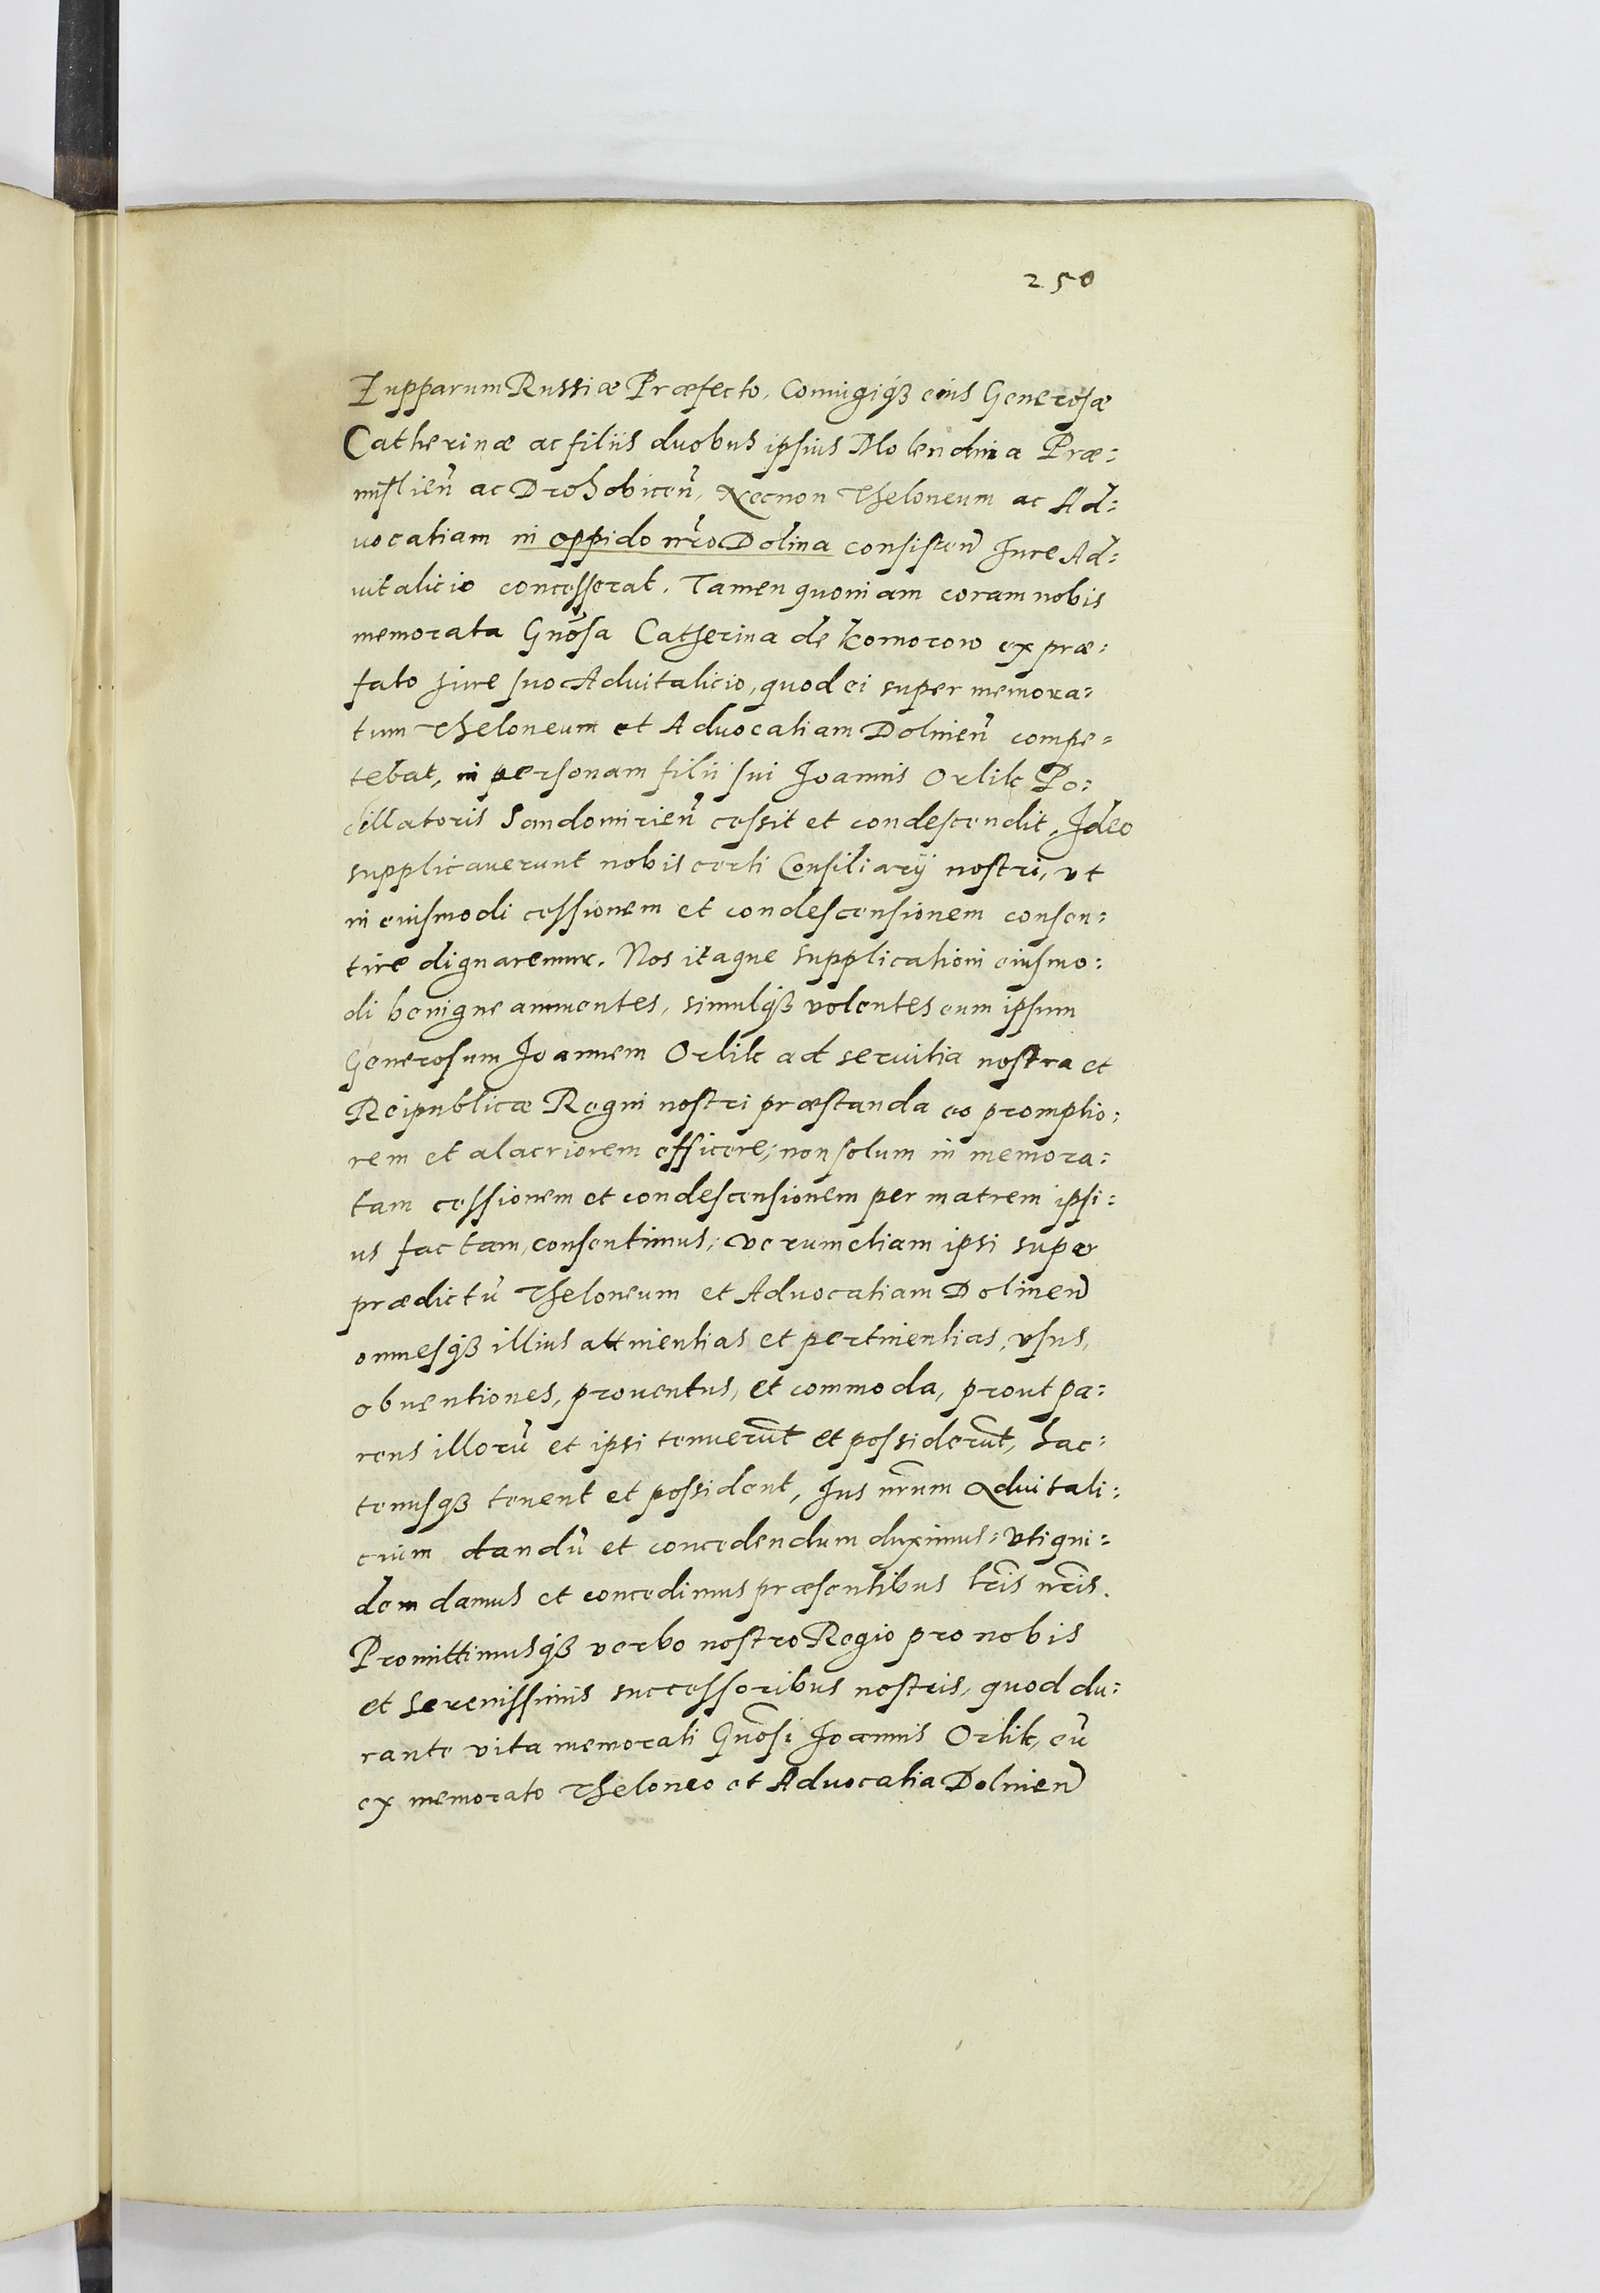 250
Zupparum Russiæ Præfecto, Coniugiqß eius Generosæ
Catherinæ ac filiis duobus ipsius Molendina Præ:
mislien̄ ac Drohobicen̄, Necnon Theloneum ac Ad:
uocatiam in oppido nr̄o Dolina consisten̄ Jure Ad:
uitalicio concesserat. Tamen quoniam coram nobis
memorata Gnōsa Catherina de Komorow ex præ:
fato jure suo Aduitalicio, quod ei super memora:
tum Theloneum et Aduocatiam Dolinen̄ compe:
tebat, in personam filii sui Joannis Orlik Po:
cillatoris Sandomirien̄ cessit et condescendit, Ideo
supplicauerunt nobis certi Consiliarÿ nostri, vt
in eiusmodi cessionem et condescensionem consen:
tire dignaremur. Nos itaque supplicationi eiusmo:
di benigne annuentes, simulqß volentes eum ipsum
Generosum Joannem Orlik ad seruitia nostra et
Reipublicæ Regni nostri præstanda eo promptio:
rem et alacriorem efficere; non solum in memora:
tam cessionem et condescensionem per matrem ipsi:
us factam, consentimus; verumetiam ipsi super
prædictū Theloneum et Aduocatiam Dolinen̄
omnesqß illius attinentias et pertinentias, vsus,
obuentiones, prouentus, et commoda, prout pa:
rens illorū et ipsi tenuerūt et possiderūt, hac:
tenusqß tenent et possident, Jus nr̄um Aduitali:
cium dandū et concedendum duximus: Vti qui:
dem damus et concedimus præsentibus lr̄is nr̄is.
Promittimusqß verbo nostro Regio pro nobis
et Serenissimis successoribus nostris, quod du:
rante vita memorati Gnōsi Joannis Orlik, eū
ex memorato Theloneo et Aduocatia Dolinen̄